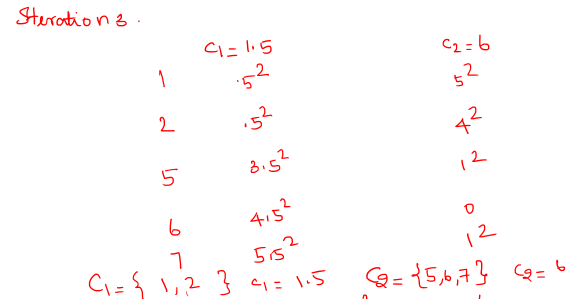 Iteration 3.
C₁ = 1.5 C₂ = 6
1 .5² 5²
2 .5² 4²
5 3.5² 1²
6 4.5² 0
7 5.5² 1²
C₁ = { 1, 2 } C₁ = 1.5 C₂ = {5,6,7} C₂ = 6